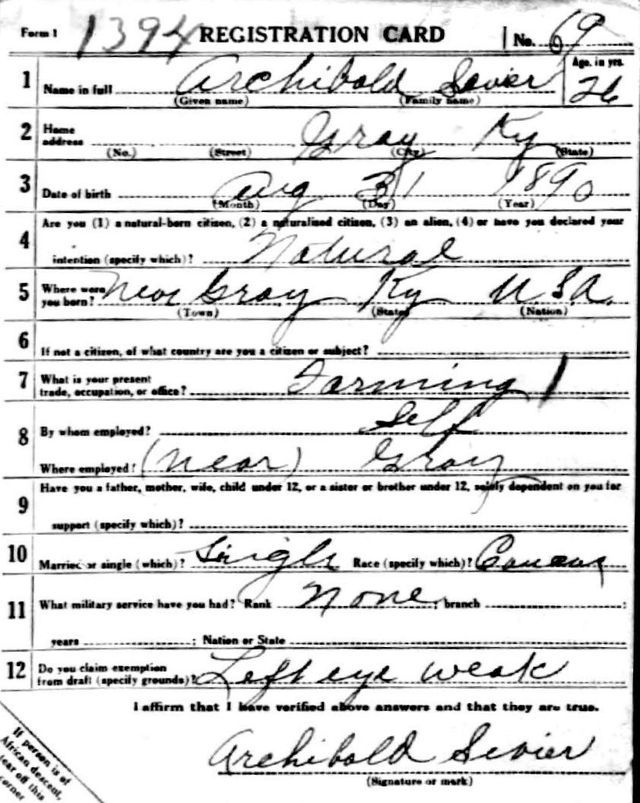 Form 1 1394 REGISTRATION CARD No. 69
1 Name in full Archibold Sevier Age, in yrs. 26
(Given name) (Family name)
2 Home address Gray Ky
(No.) (Street) (City) (State)
3 Date of birth Aug 31 1890
(Month) (Day) (Year)
4 Are you (1) a natural-born citizen, (2) a naturalized citizen, (3) an alien, (4) or have you declared your
intention (specify which)? Natural
5 Where were you born? Near Gray Ky USA.
(Town) (State) (Nation)
6 If not a citizen, of what country are you a citizen or subject?
7 What is your present trade, occupation, or office? Farming
8 By whom employed? Self
Where employed? (near) Gray
9 Have you a father, mother, wife, child under 12, or a sister or brother under 12, solely dependent on you for
support (specify which)?
10 Married or single (which)? Single Race (specify which)?
11 What military service have you had? Rank None; branch
years ; Nation or State
12 Do you claim exemption from draft (specify grounds)? Left eye weak
I affirm that I have verified above answers and that they are true.
Archibold Sevier
(Signature or mark)
If person is of
African descent,
tear off this
corner